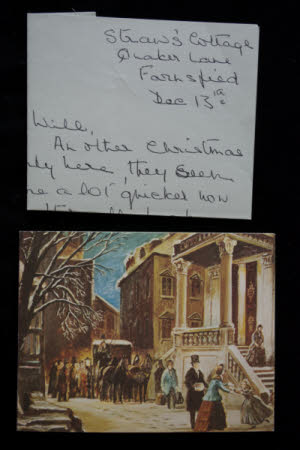 Straw's Cottage
Quaker Lane
Farnsfied
Dec 13th
Will,
An other Christmas
here, they seem
a lot quicker now